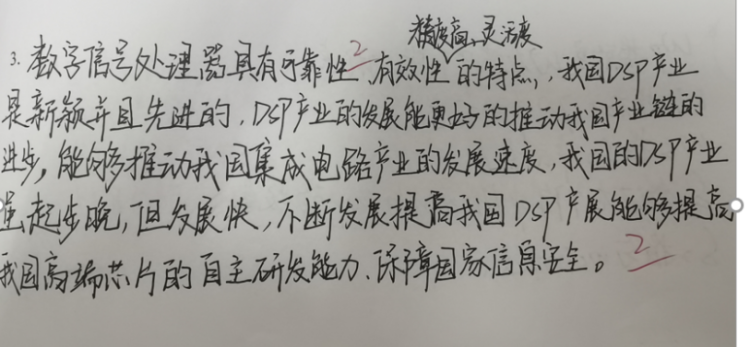 精度高、灵活度
3. 数字信号处理器具有可靠性 2 有效性的特点,,我国DSP产业
是新颖并且先进的,DSP产业的发展能更好的推动我国产业链的
进步,能够推动我国集成电路产业的发展速度,我国的DSP产业
虽起步晚,但发展快,不断发展提高我国DSP产展能够提高
我国高端芯片的自主研发能力、保障国家信息安全。 2